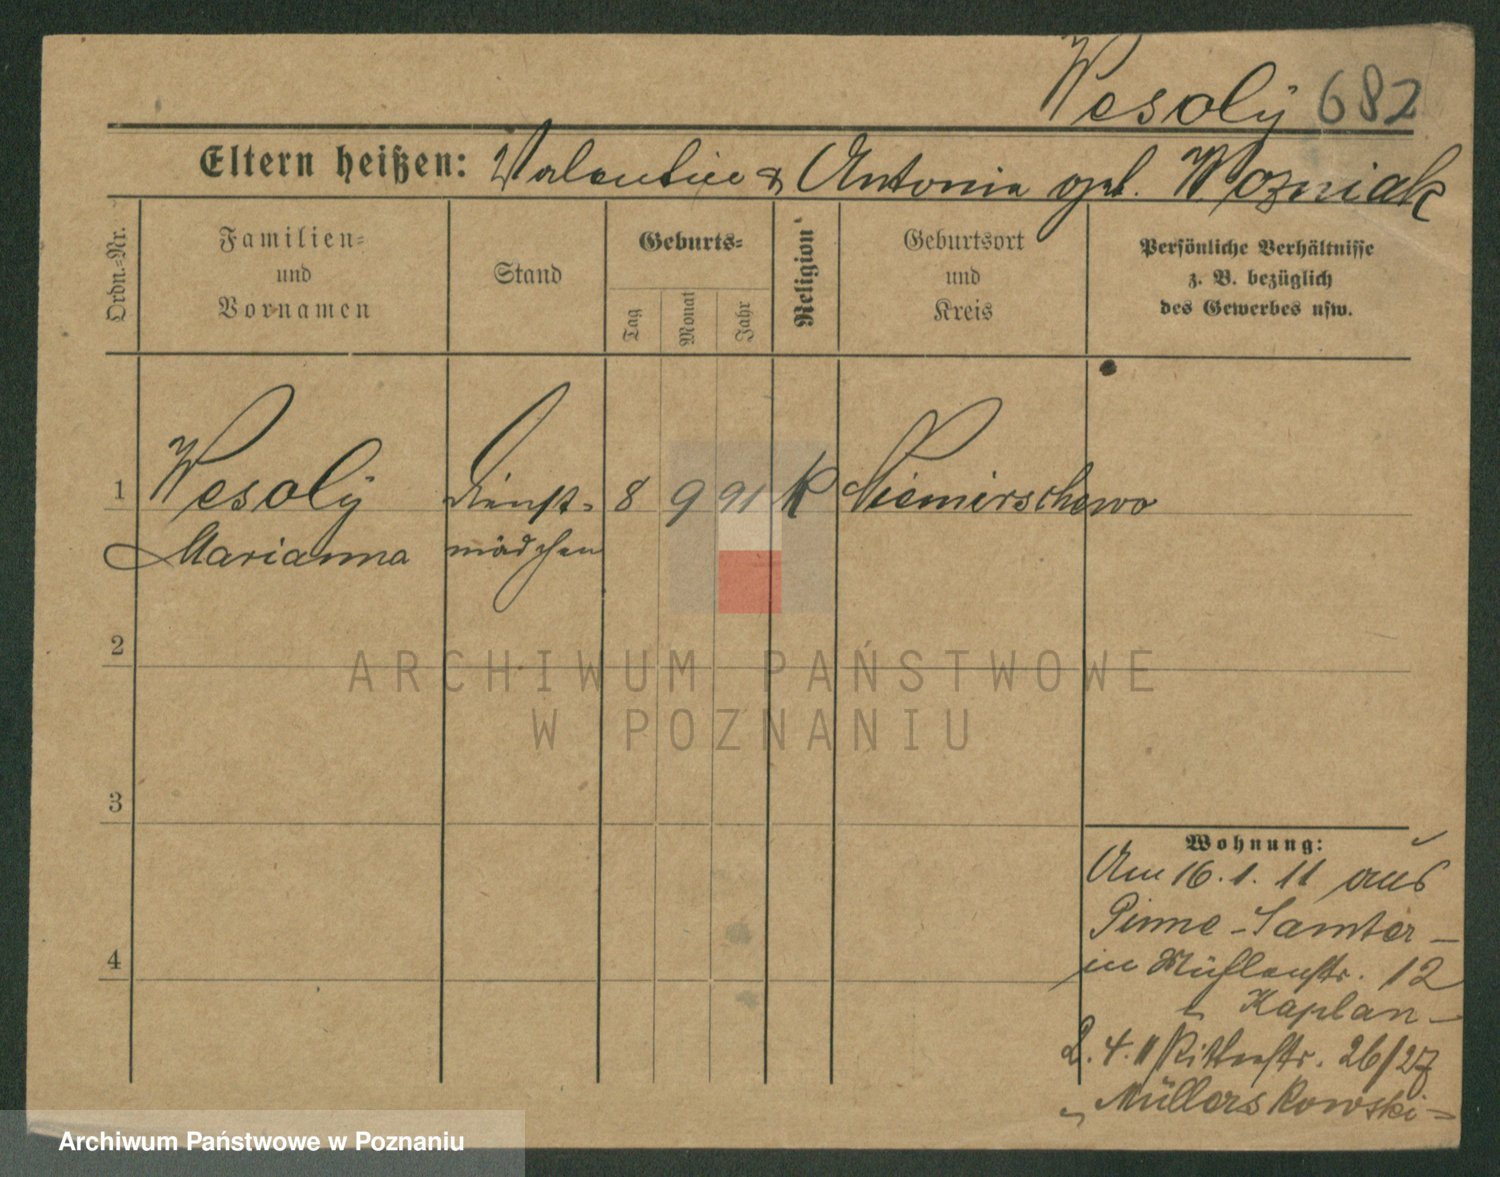 Wesolÿ 682
Eltern heißen: Valentin & Antonia geb. Wozniak
Ordn.=Nr.
Familien=
und
Vornamen
Stand
Geburts=
Tag
Monat
Jahr
Religion
Geburtsort
und
Kreis
Persönliche Verhältnisse
z. B. bezüglich
des Gewerbes usw.
1 Wesolÿ Dienst= 8 9 91 K Niemierschewo
Marianna mädchen
2
3
4
Wohnung:
Am 16.1.11 aus
Pinne - Samter -
in Mühlenstr. 12
Kaplan -
2.4.11 Ritterstr. 26/27
Müllerskowski =
ARCHIWUM PAŃSTWOWE
W POZNANIU
Archiwum Państwowe w Poznaniu